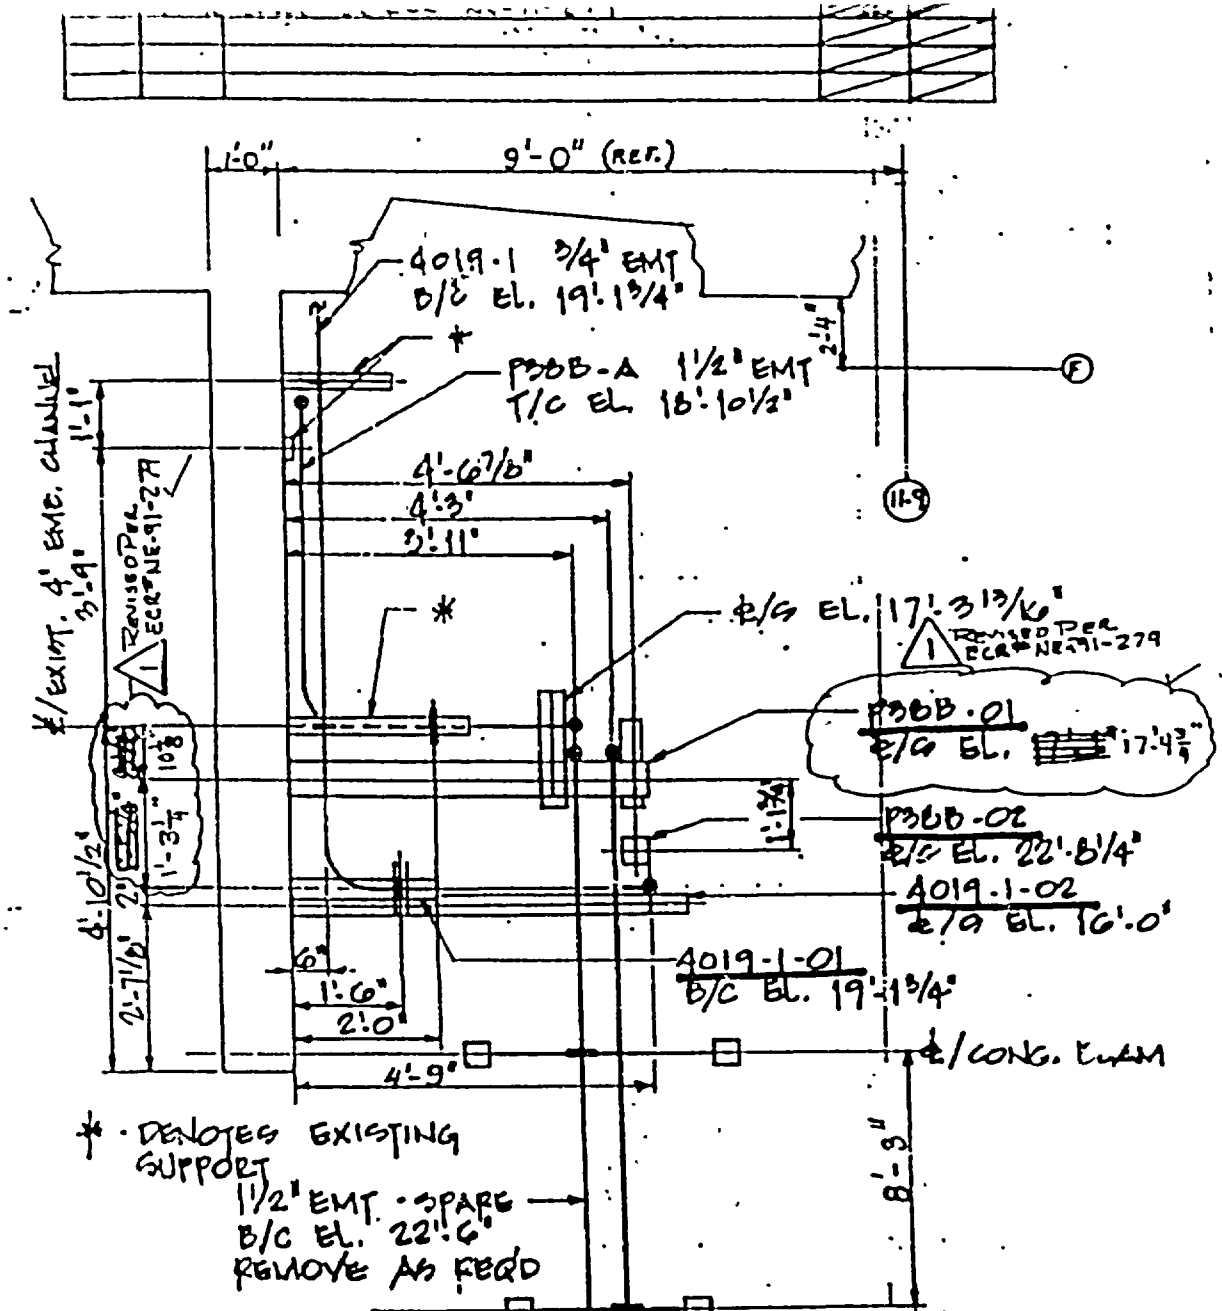 1'-0"
9'-0" (REF.)
4019-1 3/4" EMT
B/C EL. 19'-1 3/4"
*
P38B-A 1 1/2" EMT
T/C EL. 18'-10 1/2"
2'-4"
F
11.9
1'-1"
3'-9"
℄/EXIST. 4" EMB. CHANNEL
1
REVISED PER
ECR# NE-91-279
4'-6 7/8"
4'-3"
3'-11"
*
℄/S EL. 17'-3 13/16"
1
REVISED PER
ECR# NE-91-279
P38B-01
℄/S EL. 17'-4 3/4"
10 1/8"
1'-3 1/4"
2"
4'-10 1/2"
2'-7 1/8"
1'-1 3/4"
P38B-02
℄/S EL. 22'-8 1/4"
4019-1-02
℄/S EL. 16'-0"
4019-1-01
B/C EL. 19'-1 3/4"
6"
1'-6"
2'-0"
4'-9"
℄/CONC. BEAM
8'-3"
* - DENOTES EXISTING
SUPPORT
1 1/2" EMT - SPARE
B/C EL. 22'-6"
REMOVE AS REQ'D